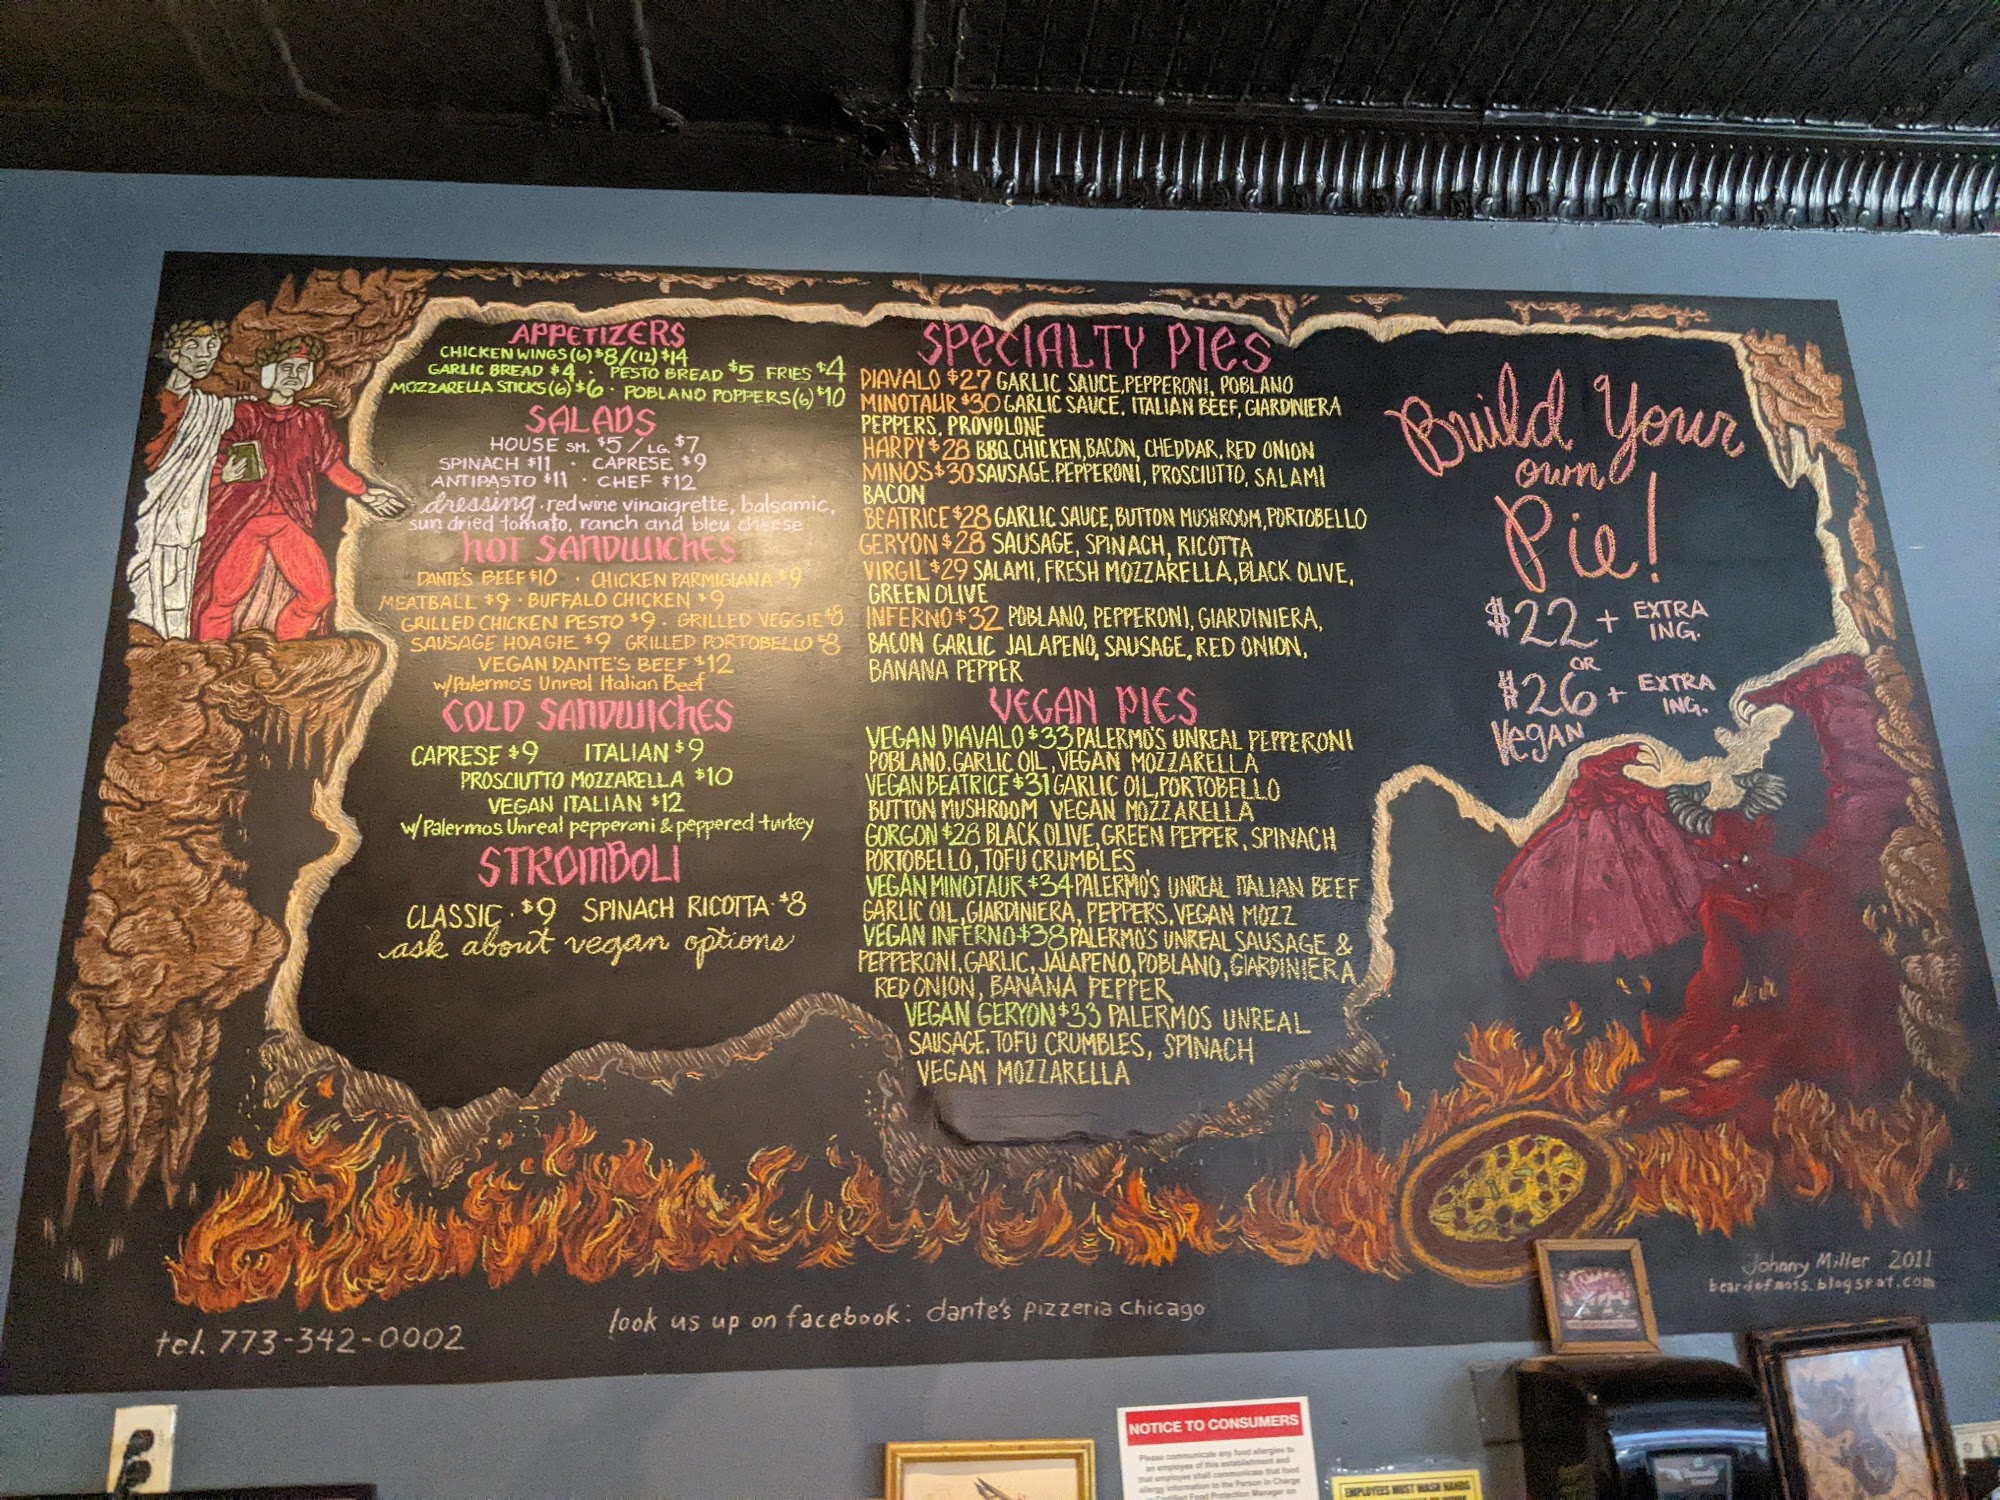 APPETIZERS
CHICKEN WINGS (6) $8/(12) $14
GARLIC BREAD $4 · PESTO BREAD $5 FRIES $4
MOZZARELLA STICKS (6) $6 · POBLANO POPPERS (6) $10
SALADS
HOUSE SM. $5 / LG. $7
SPINACH $11 · CAPRESE $9
ANTIPASTO $11 · CHEF $12
dressing. red wine vinaigrette, balsamic,
sun dried tomato, ranch and bleu cheese
HOT SANDWICHES
DANTE'S BEEF $10 · CHICKEN PARMIGIANA $9
MEATBALL $9 · BUFFALO CHICKEN $9
GRILLED CHICKEN PESTO $9 · GRILLED VEGGIE $8
SAUSAGE HOAGIE $9 GRILLED PORTOBELLO $8
VEGAN DANTE'S BEEF $12
w/Palermo's Unreal Italian Beef
COLD SANDWICHES
CAPRESE $9 ITALIAN $9
PROSCIUTTO MOZZARELLA $10
VEGAN ITALIAN $12
w/Palermos Unreal pepperoni & peppered turkey
STROMBOLI
CLASSIC · $9 SPINACH RICOTTA · $8
ask about vegan options
SPECIALTY PIES
DIAVALO $27 GARLIC SAUCE, PEPPERONI, POBLANO
MINOTAUR $30 GARLIC SAUCE. ITALIAN BEEF, GIARDINIERA
PEPPERS, PROVOLONE
HARPY $28 BBQ CHICKEN, BACON, CHEDDAR, RED ONION
MINOS $30 SAUSAGE. PEPPERONI, PROSCIUTTO, SALAMI
BACON
BEATRICE $28 GARLIC SAUCE, BUTTON MUSHROOM, PORTOBELLO
GERYON $28 SAUSAGE, SPINACH, RICOTTA
VIRGIL $29 SALAMI, FRESH MOZZARELLA, BLACK OLIVE,
GREEN OLIVE
INFERNO $32 POBLANO, PEPPERONI, GIARDINIERA,
BACON GARLIC JALAPENO, SAUSAGE, RED ONION,
BANANA PEPPER
VEGAN PIES
VEGAN DIAVALO $33 PALERMO'S UNREAL PEPPERONI
POBLANO. GARLIC OIL, VEGAN MOZZARELLA
VEGAN BEATRICE $31 GARLIC OIL, PORTOBELLO
BUTTON MUSHROOM VEGAN MOZZARELLA
GORGON $28 BLACK OLIVE, GREEN PEPPER, SPINACH
PORTOBELLO, TOFU CRUMBLES
VEGAN MINOTAUR $34 PALERMO'S UNREAL ITALIAN BEEF
GARLIC OIL, GIARDINIERA, PEPPERS. VEGAN MOZZ
VEGAN INFERNO $38 PALERMO'S UNREAL SAUSAGE &
PEPPERONI, GARLIC, JALAPENO, POBLANO, GIARDINIERA
RED ONION, BANANA PEPPER
VEGAN GERYON $33 PALERMOS UNREAL
SAUSAGE. TOFU CRUMBLES, SPINACH
VEGAN MOZZARELLA
Build Your
own
Pie!
$22 + EXTRA
ING.
OR
$26 + EXTRA
ING.
Vegan
Johnny Miller 2011
beardofmoss.blogspot.com
tel. 773-342-0002
look us up on facebook: dante's pizzeria chicago
NOTICE TO CONSUMERS
Please communicate any food allergies to
an employee of this establishment and
that employee shall communicate that food
allergy information to the Person In Charge
or Certified Food Protection Manager on
EMPLOYEES MUST WASH HANDS